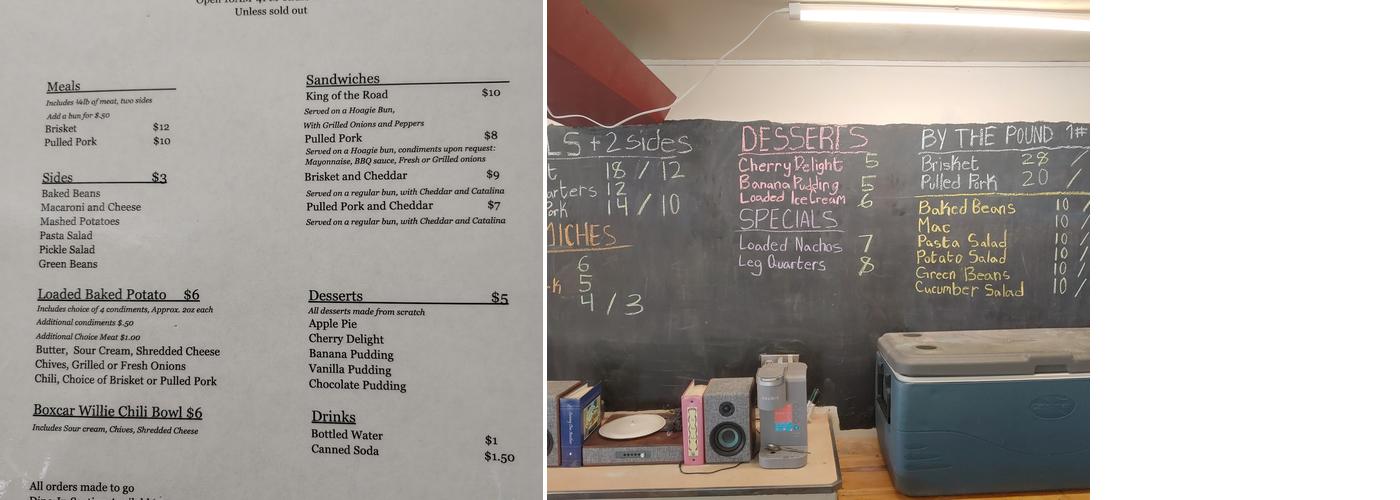 Unless sold out
Meals
Includes ¼lb of meat, two sides
Add a bun for $.50
Brisket $12
Pulled Pork $10
Sides $3
Baked Beans
Macaroni and Cheese
Mashed Potatoes
Pasta Salad
Pickle Salad
Green Beans
Loaded Baked Potato $6
Includes choice of 4 condiments, Approx. 2oz each
Additional condiments $.50
Additional Choice Meat $1.00
Butter, Sour Cream, Shredded Cheese
Chives, Grilled or Fresh Onions
Chili, Choice of Brisket or Pulled Pork
Boxcar Willie Chili Bowl $6
Includes Sour cream, Chives, Shredded Cheese
All orders made to go
Sandwiches
King of the Road $10
Served on a Hoagie Bun,
With Grilled Onions and Peppers
Pulled Pork $8
Served on a Hoagie bun, condiments upon request:
Mayonnaise, BBQ sauce, Fresh or Grilled onions
Brisket and Cheddar $9
Served on a regular bun, with Cheddar and Catalina
Pulled Pork and Cheddar $7
Served on a regular bun, with Cheddar and Catalina
Desserts $5
All desserts made from scratch
Apple Pie
Cherry Delight
Banana Pudding
Vanilla Pudding
Chocolate Pudding
Drinks
Bottled Water $1
Canned Soda $1.50
LS + 2 sides
t 18 / 12
arters 12
ork 14 / 10
ICHES
6
k 5
4 / 3
DESSERTS
Cherry Delight 5
Banana Pudding 5
Loaded Ice Cream 6
SPECIALS
Loaded Nachos 7
Leg Quarters 8
BY THE POUND 1#
Brisket 28 /
Pulled Pork 20 /
Baked Beans 10 /
Mac 10 /
Pasta Salad 10 /
Potato Salad 10 /
Green Beans 10 /
Cucumber Salad 10 /